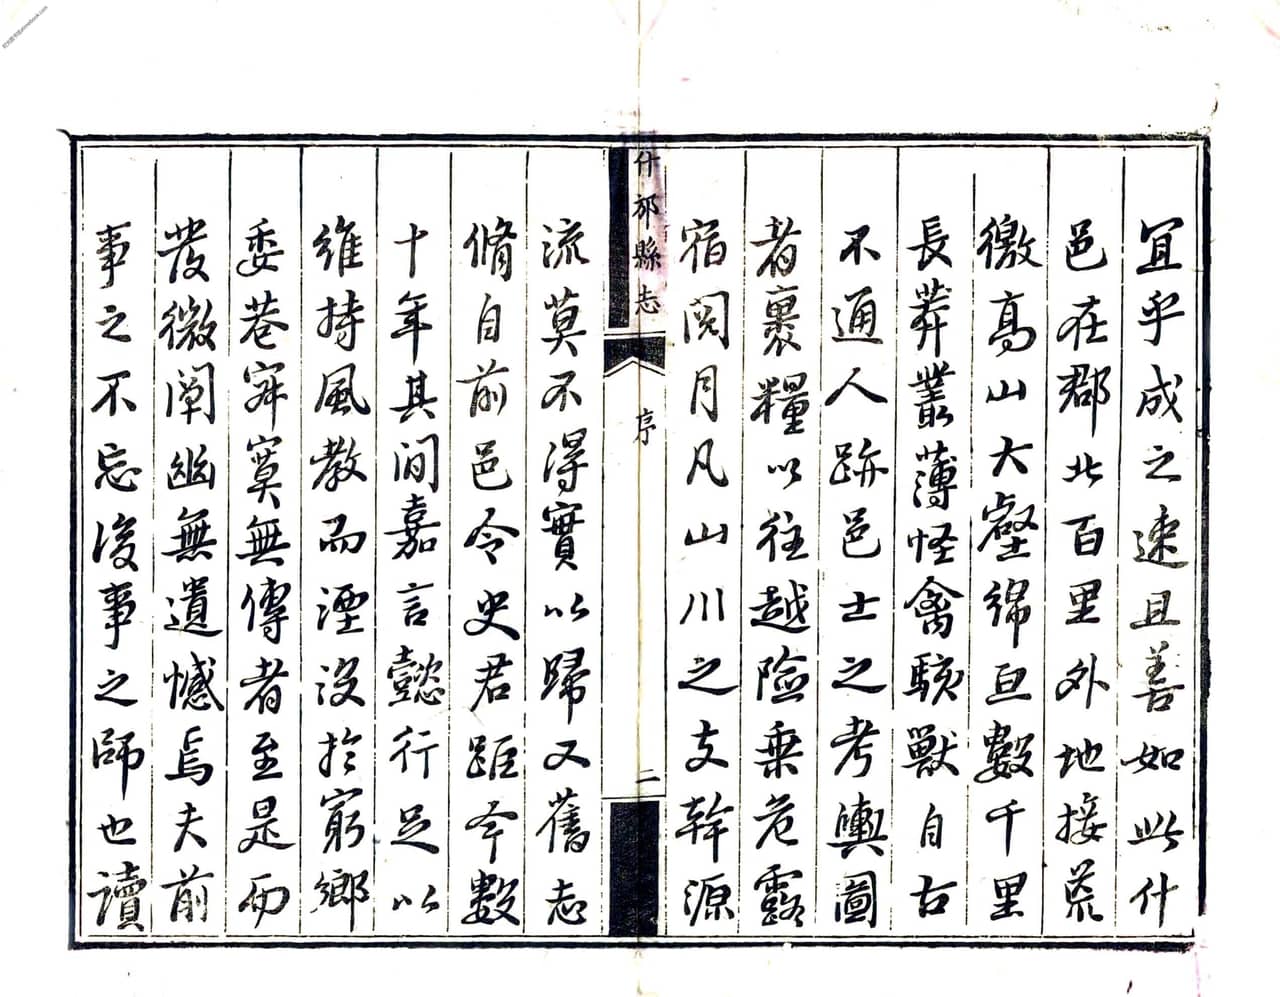 宜乎成之速且善如此什
邑在郡北百里外地接荒
徼高山大壑綿亘數千里
長莽叢薄怪禽駭獸自古
不通人跡邑士之考輿圖
者裹糧以往越險乘危露
宿閱月凡山川之支幹源
什邡縣志
序
二
流莫不得實以歸又舊志
脩自前邑令史君距今數
十年其间嘉言懿行足以
維持風教而湮沒於窮鄉
委巷寂寞無傳者至是而
發微闡幽無遺憾焉夫前
事之不忘後事之師也讀